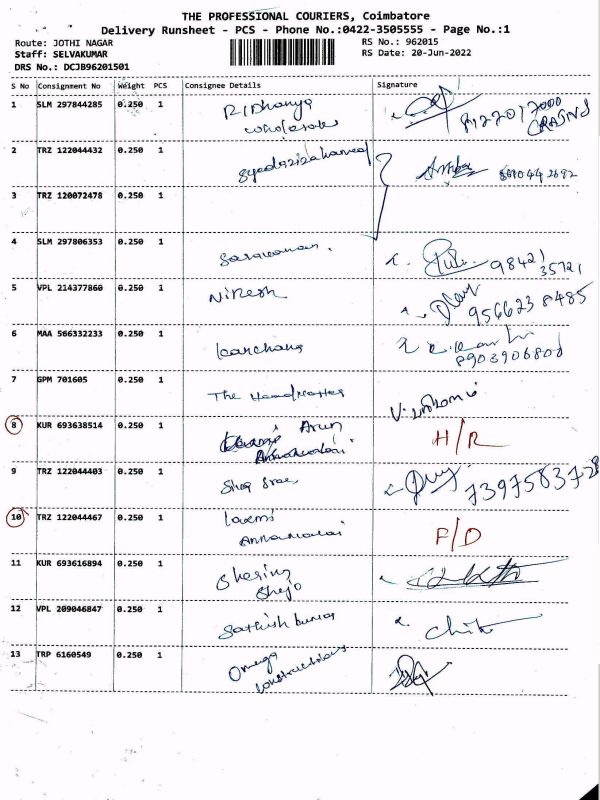 THE PROFESSIONAL COURIERS, Coimbatore
Delivery Runsheet - PCS - Phone No.:0422-3505555 - Page No.:1
Route: JOTHI NAGAR
Staff: SELVAKUMAR
DRS No.: DCJB96201501
RS No.: 962015
RS Date: 20-Jun-2022
S No Consignment No Weight PCS Consignee Details Signature
1 SLM 297844285 0.250 1
2 TRZ 122044432 0.250 1
3 TRZ 120072478 0.250 1
4 SLM 297806353 0.250 1 Saravanan. 98421
35721
5 VPL 214377860 0.250 1 Niresh
9566238485
6 MAA 566332233 0.250 1
8903906808
7 GPM 701605 0.250 1 The HeadMaster
8 KUR 693638514 0.250 1 Arun H/R
Annamalai
9 TRZ 122044403 0.250 1 Shog Sree 7397583728
10 TRZ 122044467 0.250 1 Laxmi
Annamalai F/D
11 KUR 693616894 0.250 1
12 VPL 209046847 0.250 1 Sathish kumar
13 TRP 6160549 0.250 1 Omega
constructions